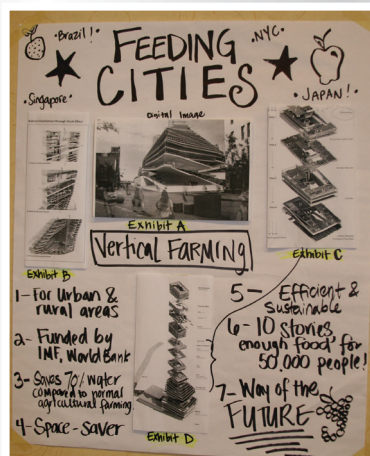 Brazil!
FEEDING
NYC
CITIES
Singapore
JAPAN!
Digital Image
Exhibit A
Exhibit B
Vertical FARMING
Exhibit C
1- For Urban &
rural areas
2- Funded by
IMF, World Bank
3- Saves 70% water
compared to normal
agricultural farming.
4- Space-saver
Exhibit D
5- Efficient &
Sustainable
6- 10 stories
enough food for
50,000 people!
7- Way of the
FUTURE